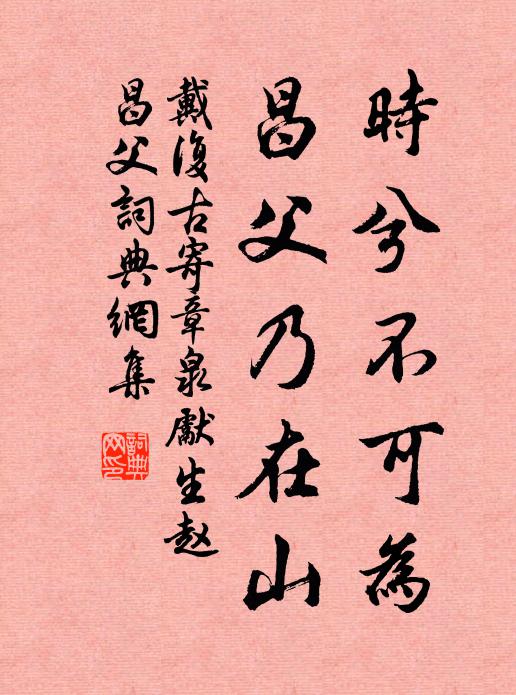 時兮不可為
昌父乃在山
戴復古寄章泉獻生赵
昌父詞典網集
詞典网印